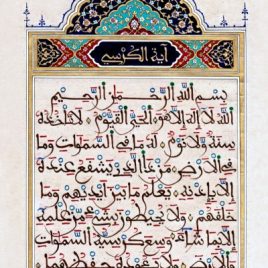 آية الكرسي
بسم الله الرحمن الرحيم
الله لا إله إلا هو الحي القيوم لا تأخذه
سنة ولا نوم له ما في السموات وما
في الأرض من ذا الذي يشفع عنده
إلا بإذنه يعلم ما بين أيديهم وما
خلفهم ولا يحيطون بشيء من علمه
إلا بما شاء وسع كرسيه السموات
والأرض ولا يؤوده حفظهما وهو